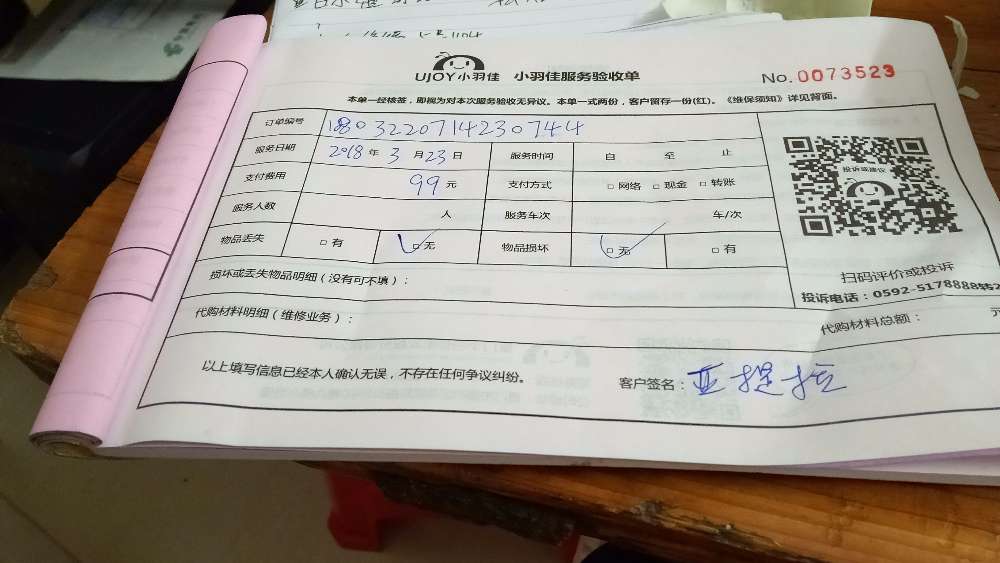 UJOY小羽佳 小羽佳服务验收单 No.0073523
本单一经核签，即视为对本次服务验收无异议。本单一式两份，客户留存一份(红)。《维保须知》详见背面。
订单编号 1803220714230744
服务日期 2018年 3月23日 服务时间 自 至 止
支付费用 99元 支付方式 □网络 □现金 □转账
服务人数 人 服务车次 车/次
物品丢失 □有 □无 物品损坏 □无 □有
投诉或建议
损坏或丢失物品明细（没有可不填）：
扫码评价或投诉
投诉电话：0592-5178888转2
代购材料明细（维修业务）： 代购材料总额： 元
以上填写信息已经本人确认无误，不存在任何争议纠纷。 客户签名：